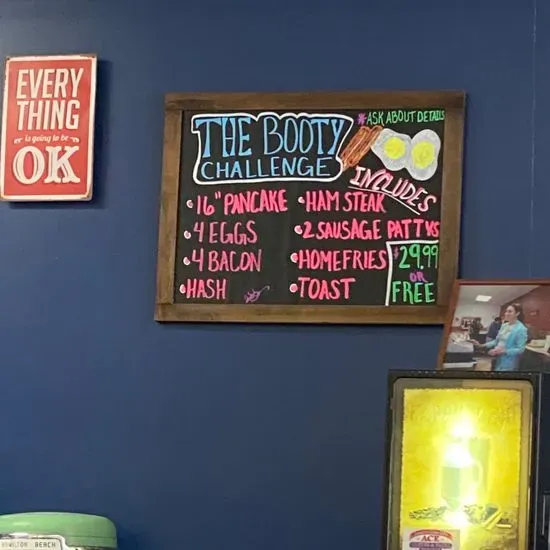 EVERY
THING
is going to be
OK
*ASK ABOUT DETAILS
THE BOOTY
CHALLENGE
INCLUDES
• 16" PANCAKE
• 4 EGGS
• 4 BACON
• HASH
• HAM STEAK
• 2 SAUSAGE PATTYS
• HOMEFRIES
• TOAST
$29.99
OR
FREE
HAMILTON BEACH
ACE